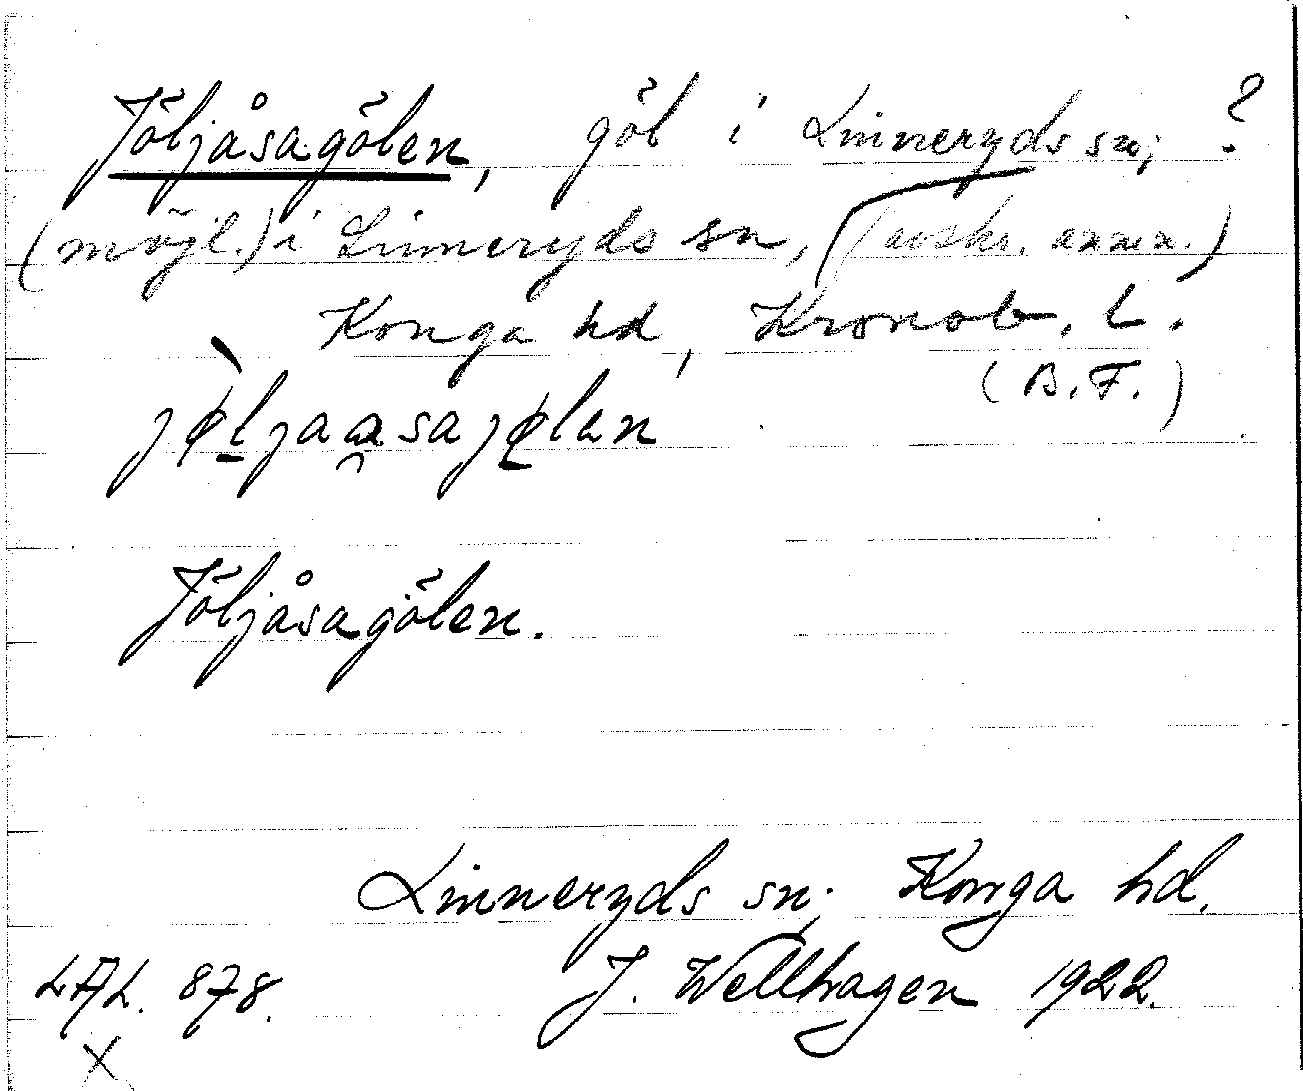 Jöljåsagölen, göl i Linneryds sn; ?
(möjl.) i Linneryds sn, (avskr. anm.)
Konga hd, Kronob. l.
(B.F.)
jøljaasajølen
Jöljåsagölen.
Linneryds sn; Konga hd.
LAL. 878. J. Wellhagen 1922.
X